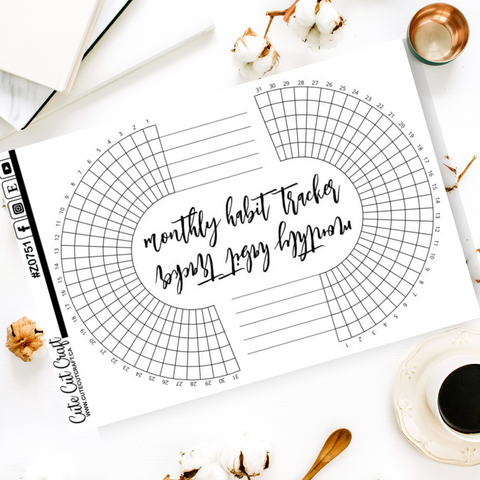 31 30 29 28 27 26 25 24 23 22 21 20 19 18 17 16 15 14 13 12 11 10 9 8 7 6 5 4 3 2 1
1 2 3 4 5 6 7 8 9 10 11 12 13 14 15 16 17 18 19 20 21 22 23 24 25 26 27 28 29 30 31
monthly habit tracker
monthly habit tracker
#Z0751
f
E
Cute Cut Craft
WWW.CUTECUTCRAFT.CA